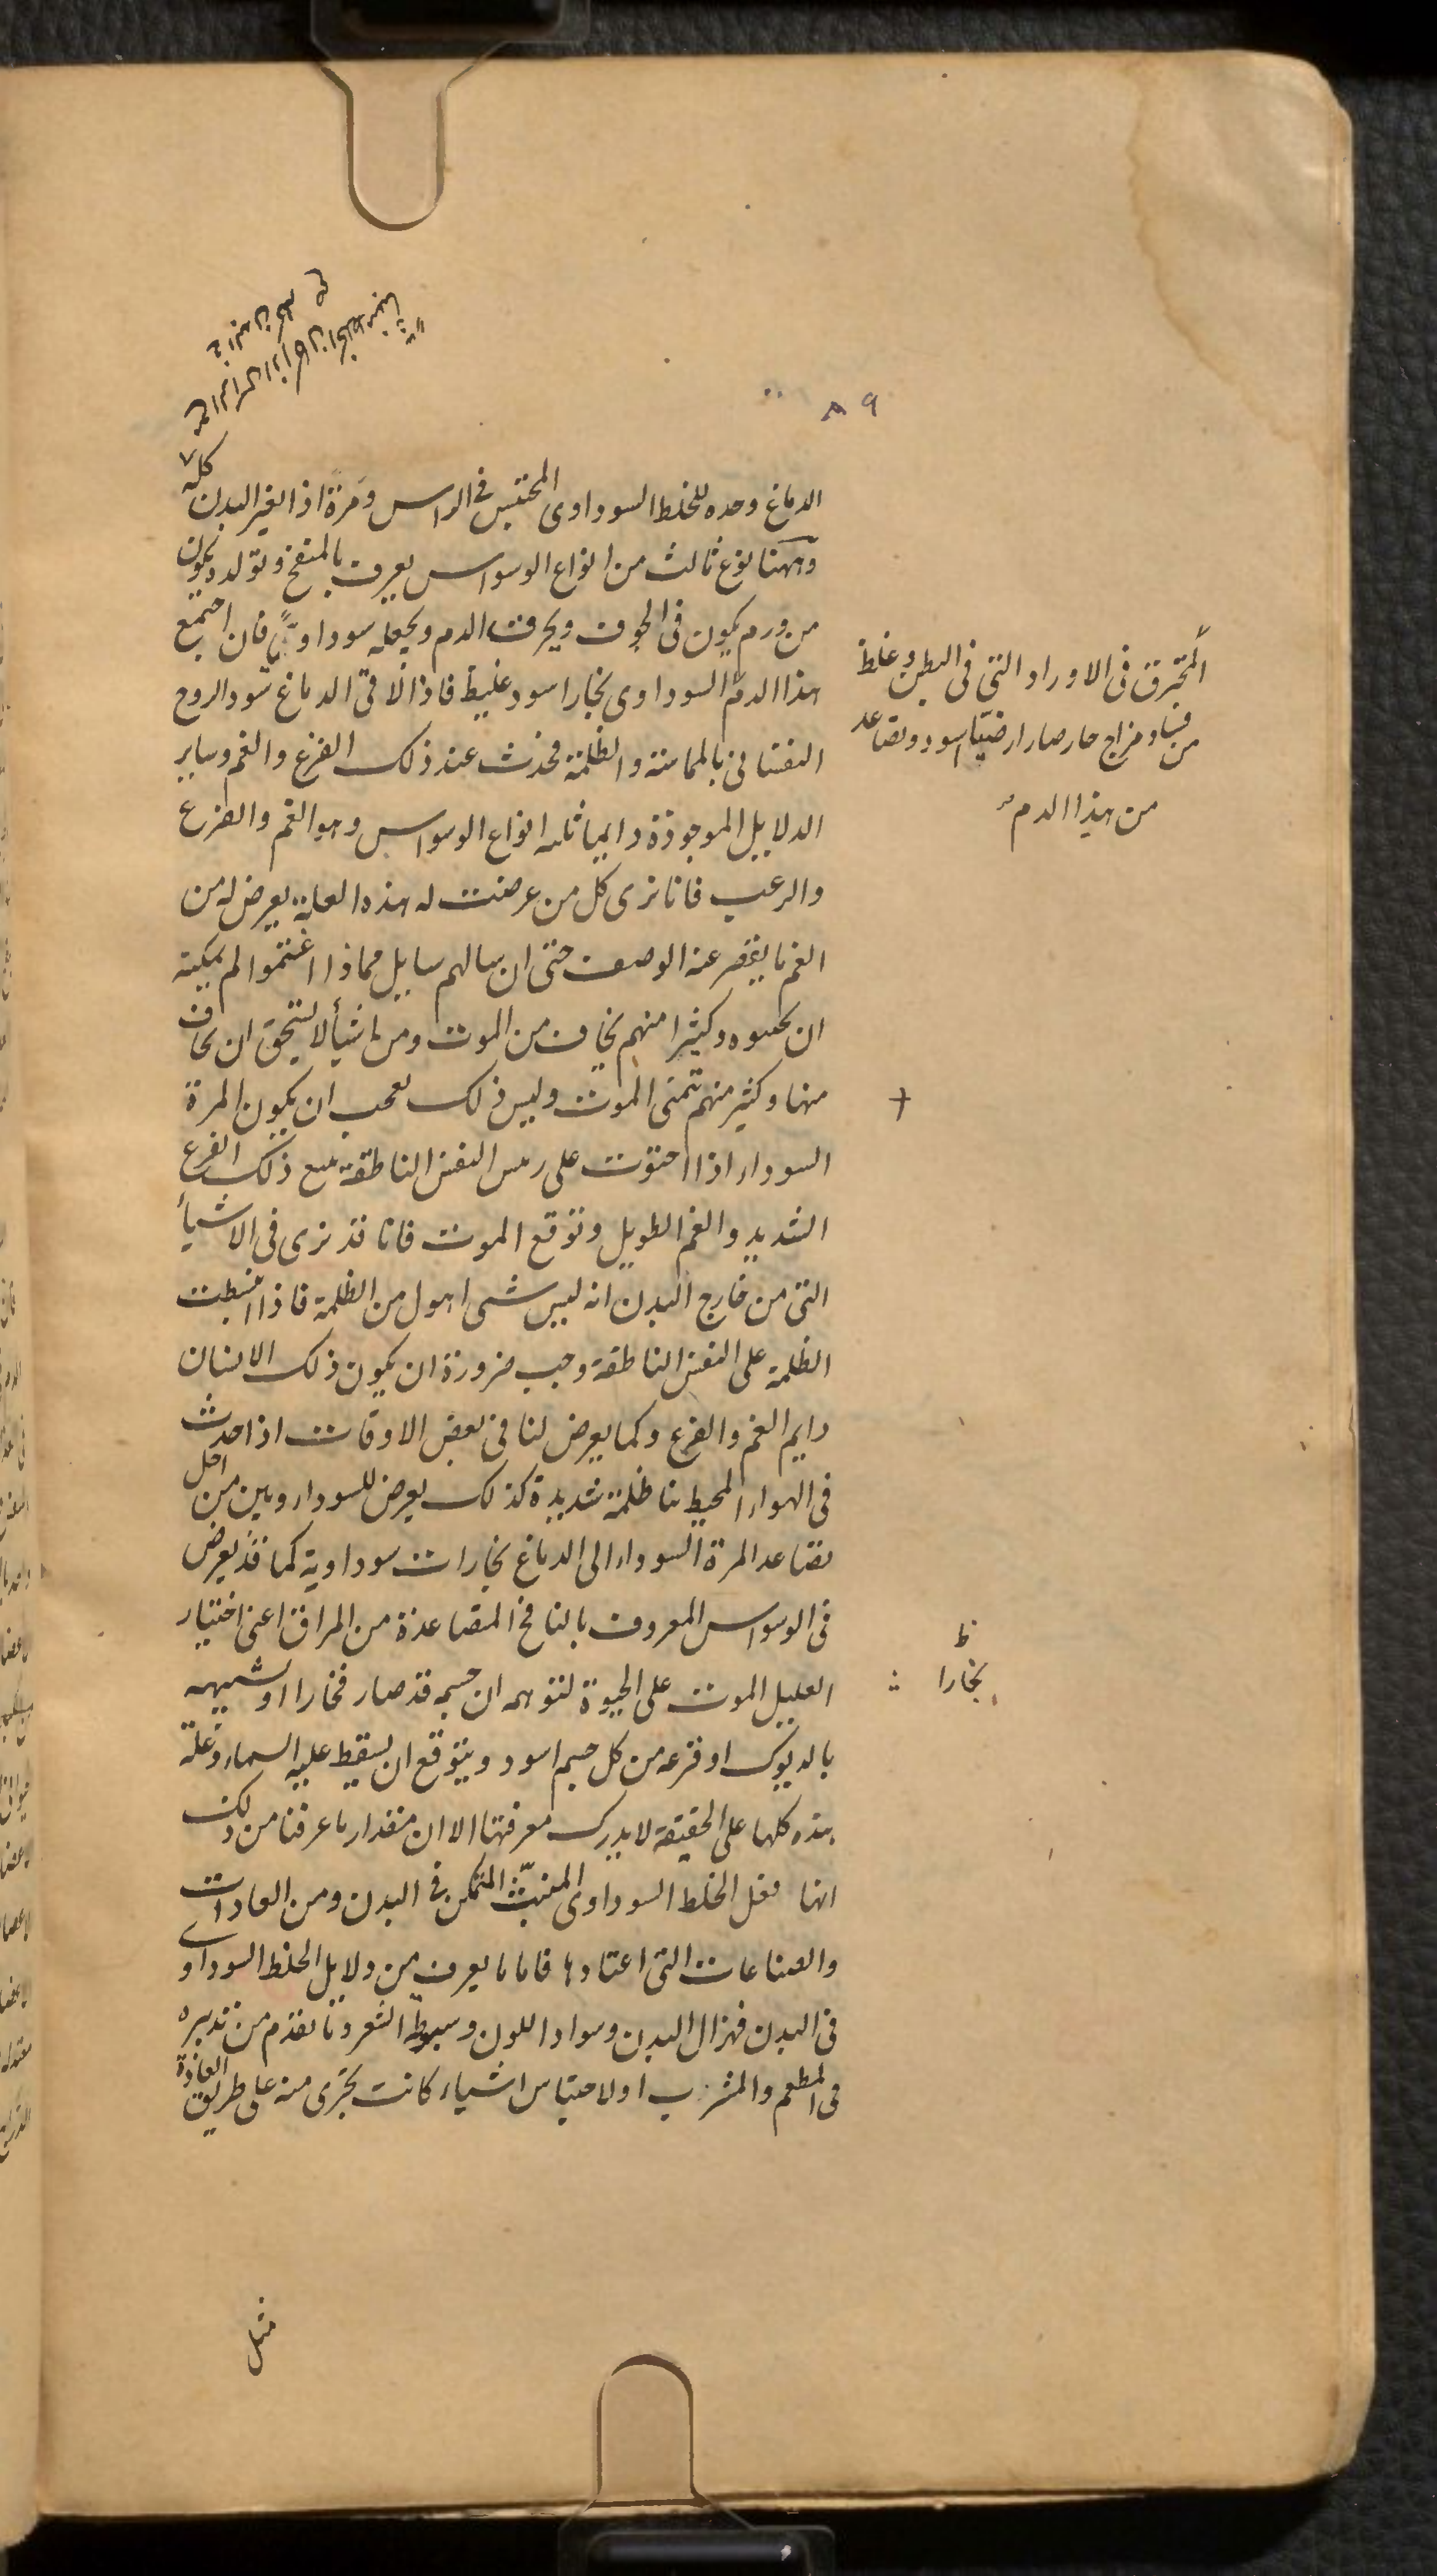 ٨٩
الدماغ وحده للخلط السوداوى المحتبس فى الراس ومرة اذا تغير البدن كله
وههنا نوع ثالث من انواع الوسواس يعرف بالمنفخ وتولده يكون
من ورم يكون فى الجوف ويحرق الدم ويجعله سوداويًا فان اجتمع
هذا الدم السوداوى بخار اسود غليظ فاذا لاقى الدماغ سود الروح
النفسانى بالمماسة والظلمة فحدث عند ذلك الفزع والغم وساير
الدلايل الموجودة دايما ثلثه انواع الوسواس وهو الغم والفزع
والرعب فانا نرى كل من عرضت له هذه العلة يعرض له من
الغم ما يقصر عنه الوصف حتى ان سالهم سايل مماذا اغتموا لم يمكنه
ان يحسوه وكثيرا منهم يخاف من الموت ومن اشيأ لا يستحق ان يخاف
منها وكثير منهم تتمنى الموت وليس ذلك بعجب ان يكون المرة
السوداء اذا احتوت على رئيس النفس الناطقة تتبع ذلك الفزع
الشديد والغم الطويل وتوقع الموت فانا قد نرى فى الاشيأ
التى من خارج البدن انه ليس شى اهول من الظلمة فاذا انبسطت
الظلمة على النفس الناطقة وجب ضرورة ان يكون ذلك الانسان
دايم الغم والفزع وكما يعرض لنا فى بعض الاوقات اذا حدث
فى الهواء المحيط بنا ظلمة شديدة كذلك يعرض للسوداويين من اجل
تصاعد المرة السوداء الى الدماغ بخارات سوداوية كما قد يعرض
فى الوسواس المعروف بالنافخ المتصاعدة من المراق اعنى اختيار
العليل الموت على الحيوة لتوهمه ان جسمه قد صار فخارا او تشبهه
بالديوك او فزعه من كل جسم اسود ويتوقع ان يسقط عليه السماء وعلة
هذه كلها على الحقيقة لا يدرك معرفتها الا ان مقدار ما عرفنا من ذلك
انها فعل الخلط السوداوى المنبثّ المتمكن فى البدن ومن العادات
والصناعات التى اعتادها فاما ما يعرف من دلايل الخلط السوداوى
فى البدن فهزال البدن وسواد اللون وسبوطة الشعر وما تقدم من تدبيره
فى المطعم والمشرب او لاحتباس اشياء كانت تجرى منه على طريق العادة
مثل
المحترق فى الاوراد التى فى البطن وغلظ
من فساد مزاج حار صار ارضيّا اسود وتصاعد
من هذا الدم
ظ
بخارا